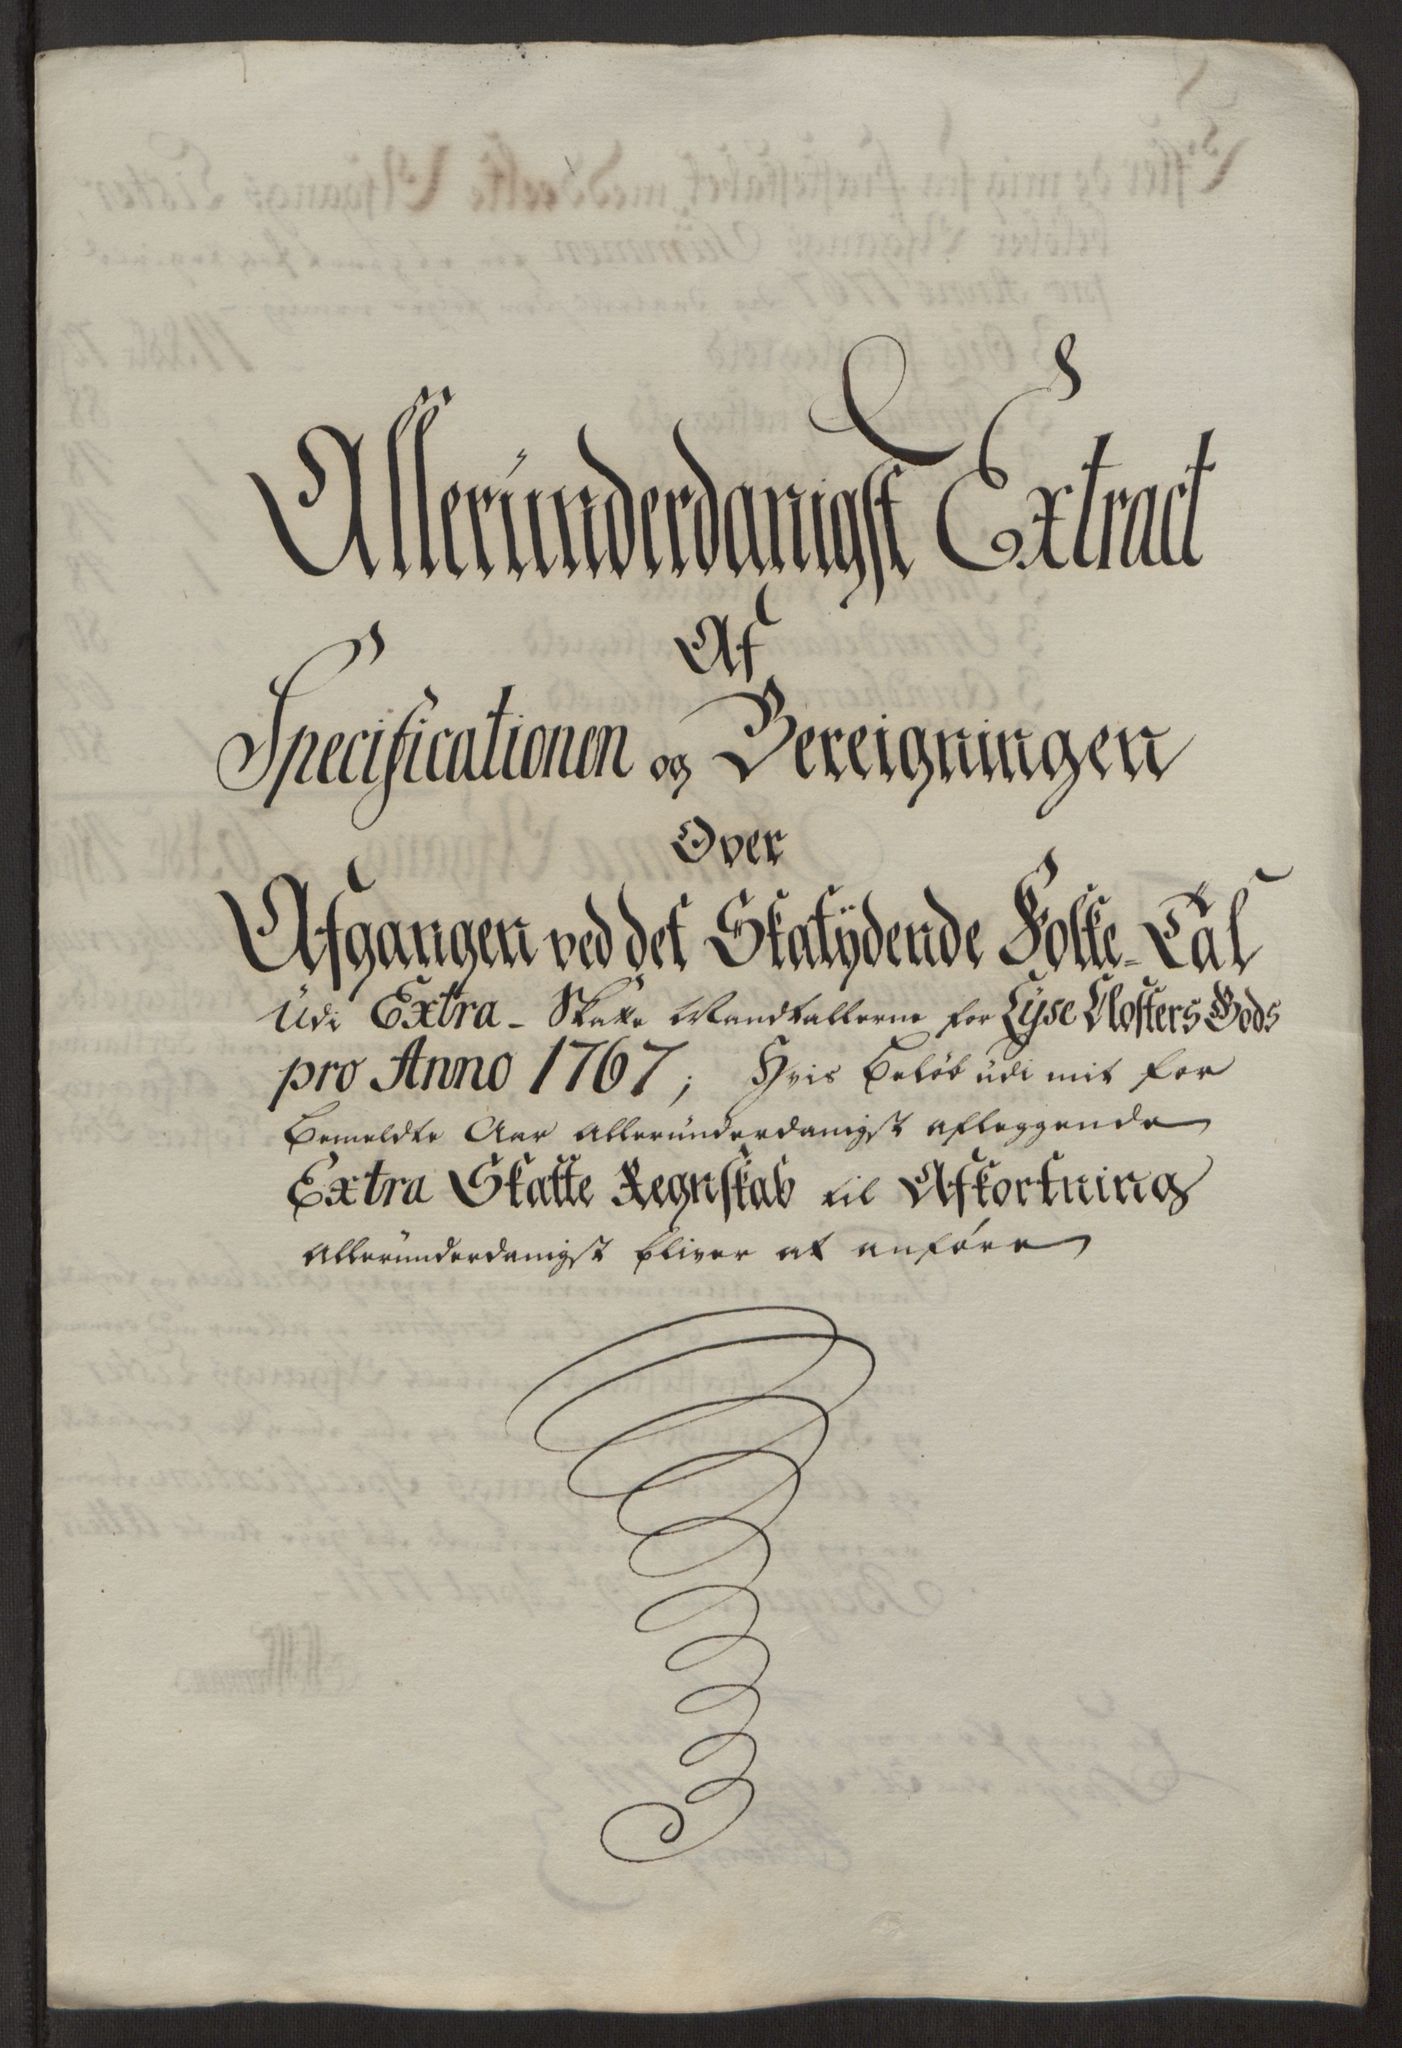 Alleründerdanigst Extract
Af
Specificationen og Bereigningen
Over
Afgangen ved det Skatÿdende Folke-Tal
Udi Extra-Skatte Mandtallerne for Lyse Closters Gods
pro Anno 1767, Hvis Beløb udi mit for
bemeldte Aar alleründerdanigst aflæggende
Extra Skatte Regnskab til Afkortning
alleründerdanigst bliver at anføre